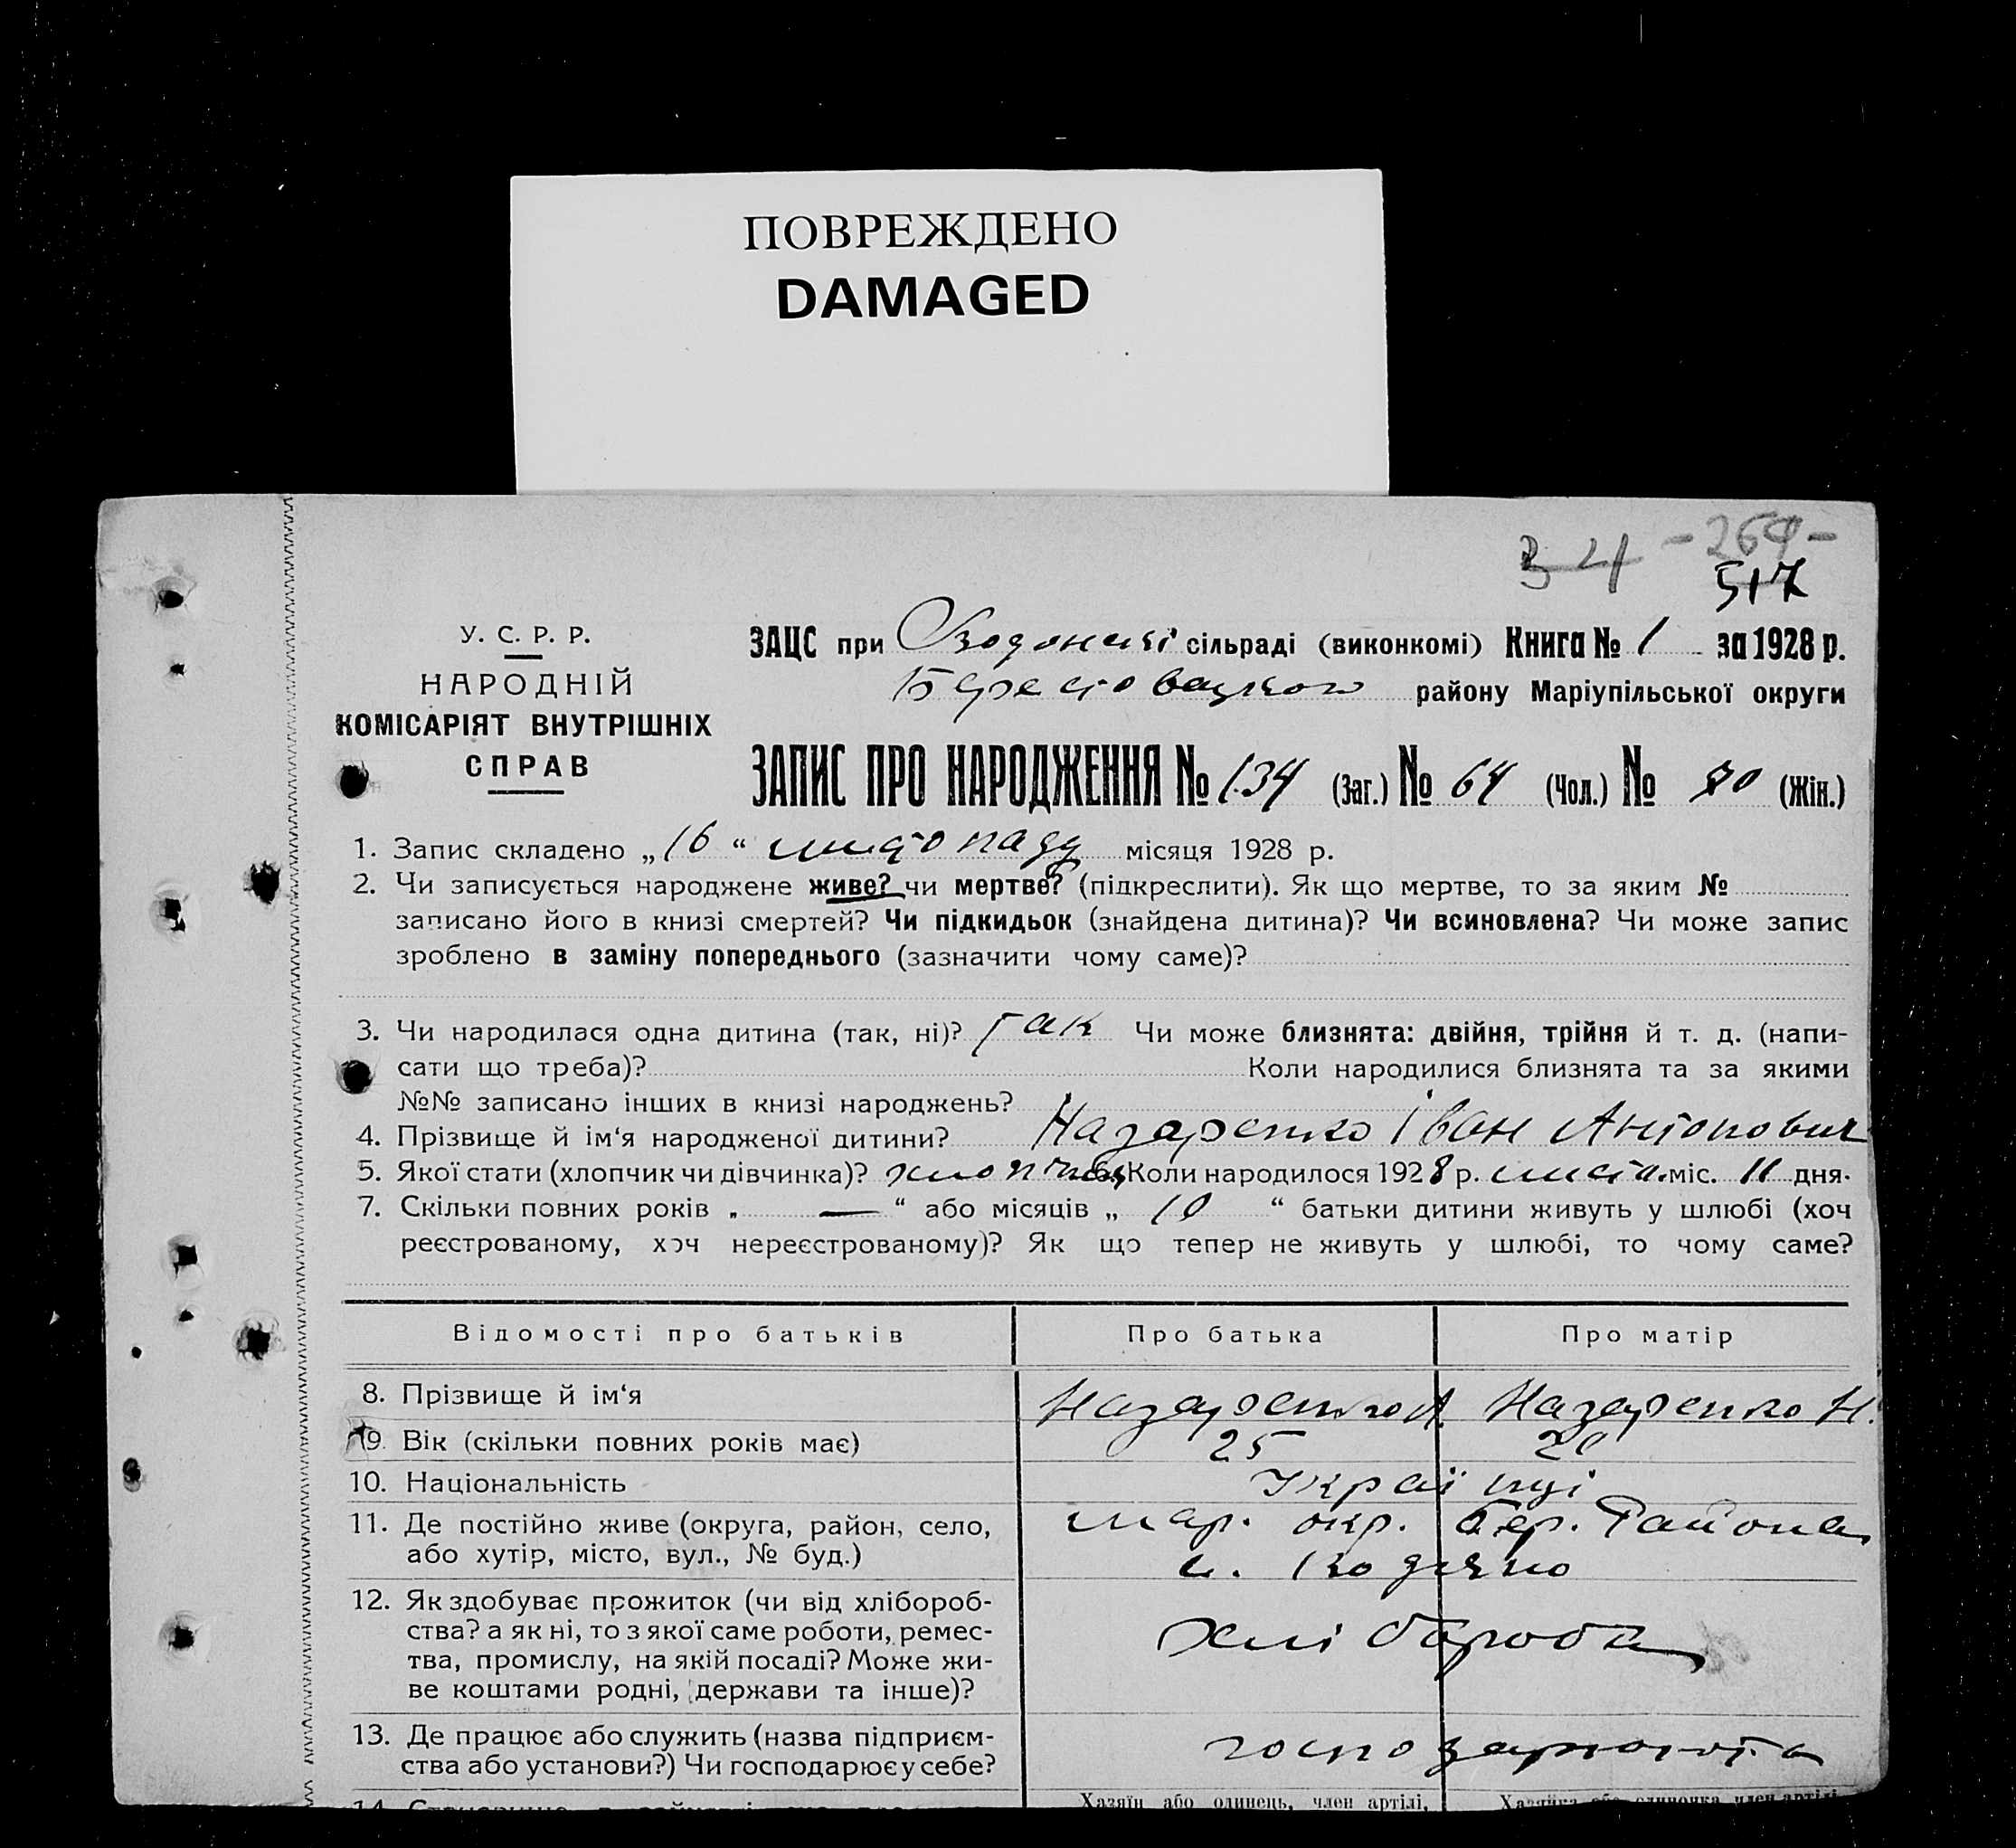 ПОВРЕЖДЕНО
DAMAGED
34 -264-
517
У. С. Р. Р.
НАРОДНІЙ
КОМІСАРІЯТ ВНУТРІШНІХ
СПРАВ
ЗАЦС при сільраді (виконкомі) Книга № 1 за 1928 р.
району Маріупільської округи
ЗАПИС ПРО НАРОДЖЕННЯ № 134 (Заг.) № 64 (Чол.) № 70 (Жін.)
1. Запис складено „16“ листопаду місяця 1928 р.
2. Чи записується народжене живе? чи мертве? (підкреслити). Як що мертве, то за яким №
записано його в книзі смертей? Чи підкидьок (знайдена дитина)? Чи всиновлена? Чи може запис
зроблено в заміну попереднього (зазначити чому саме)?
3. Чи народилася одна дитина (так, ні)? Так Чи може близнята: двійня, трійня й т. д. (напи-
сати що треба)? Коли народилися близнята та за якими
№№ записано інших в книзі народжень?
4. Прізвище й ім‘я народженої дитини? Назаренко Іван Антонович
5. Якої стати (хлопчик чи дівчинка)? хлопчик 6. Коли народилося 1928 р. листо. міс. 11 дня.
7. Скільки повних років „ — “ або місяців „ 10 “ батьки дитини живуть у шлюбі (хоч
реєстрованому, хоч нереєстрованому)? Як що тепер не живуть у шлюбі, то чому саме?
Відомості про батьків Про батька Про матір
8. Прізвище й ім‘я Назаренко А. Назаренко Н.
9. Вік (скільки повних років має) 25 20
10. Національність Українці
11. Де постійно живе (округа, район, село, Мар. окр. Бер. Района
або хутір, місто, вул., № буд.) с.
12. Як здобуває прожиток (чи від хлібороб- Хлібороба
ства? а як ні, то з якої саме роботи, ремес-
тва, промислу, на якій посаді? Може жи-
ве коштами родні, держави та інше)?
13. Де працює або служить (назва підприєм-
ства або установи?) Чи господарює у себе?
Хазяїн або одинець, член артілі, Хазяйка або одиночка член артілі